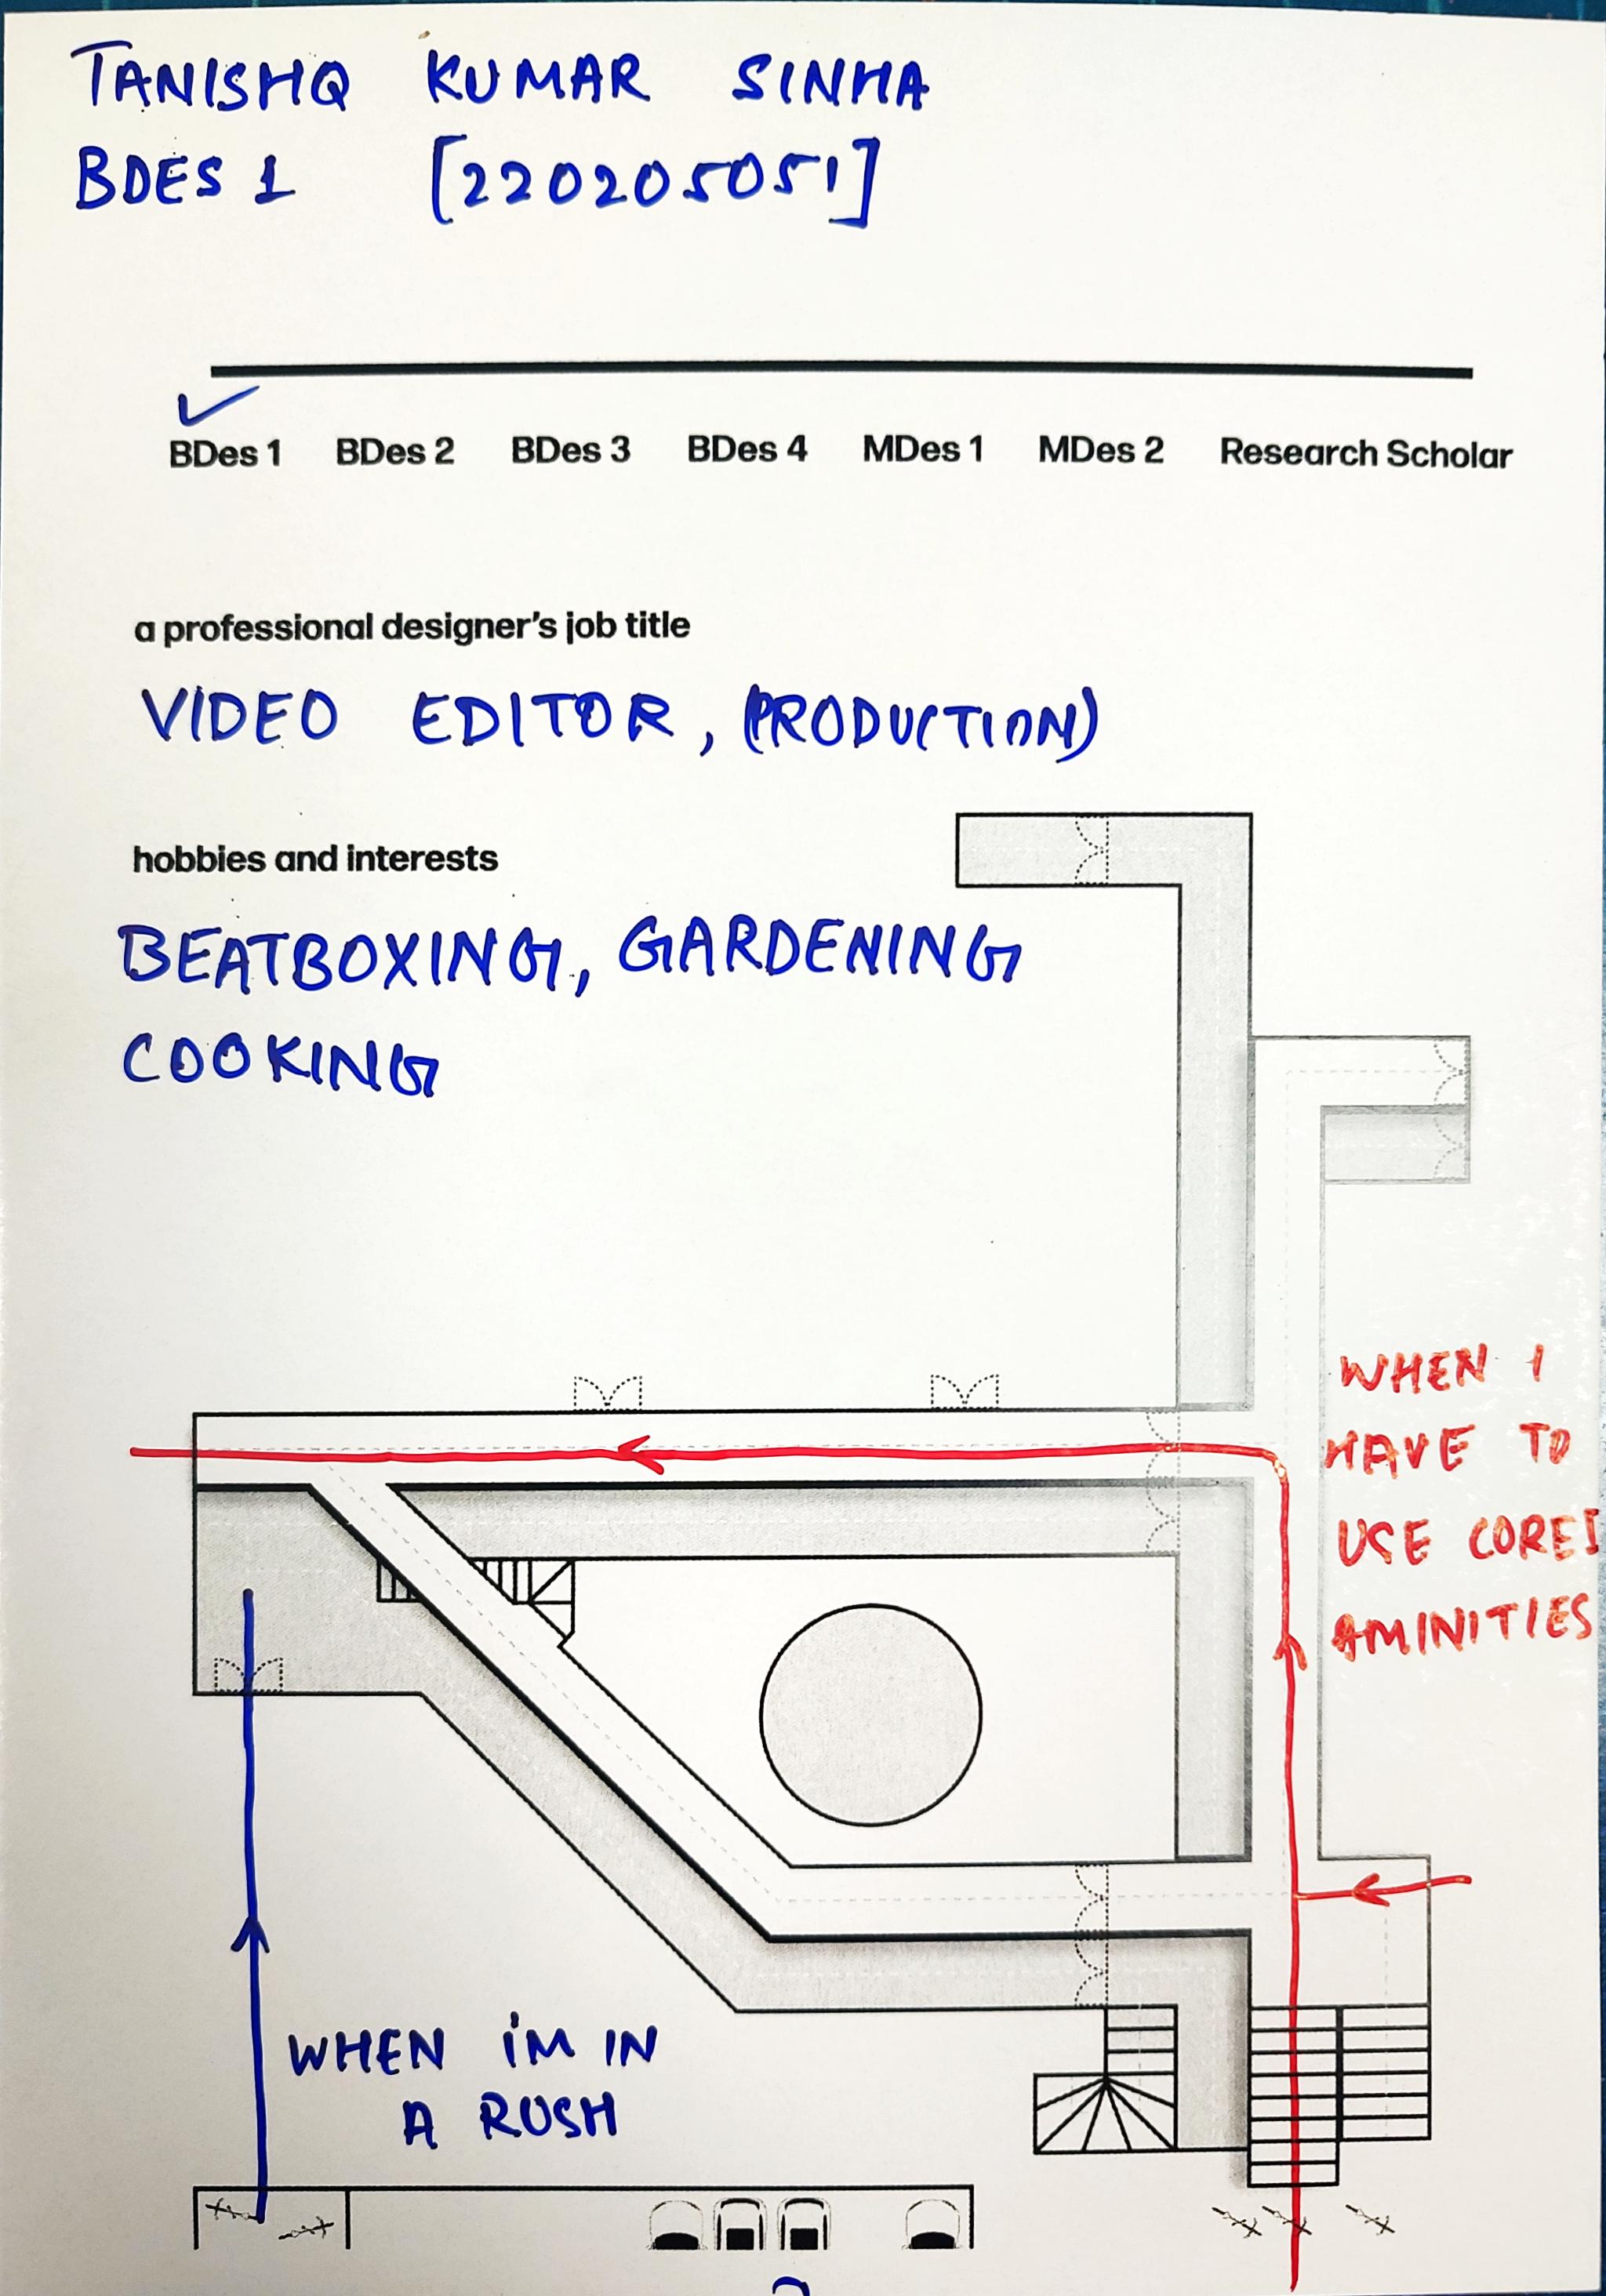 TANISHQ KUMAR SINHA
BDES 1 [220205051]
BDes 1 BDes 2 BDes 3 BDes 4 MDes 1 MDes 2 Research Scholar
a professional designer's job title
VIDEO EDITOR, (PRODUCTION)
hobbies and interests
BEATBOXING, GARDENING
COOKING
WHEN I
HAVE TO
USE CORE1
AMINITIES
WHEN IM IN
A RUSH